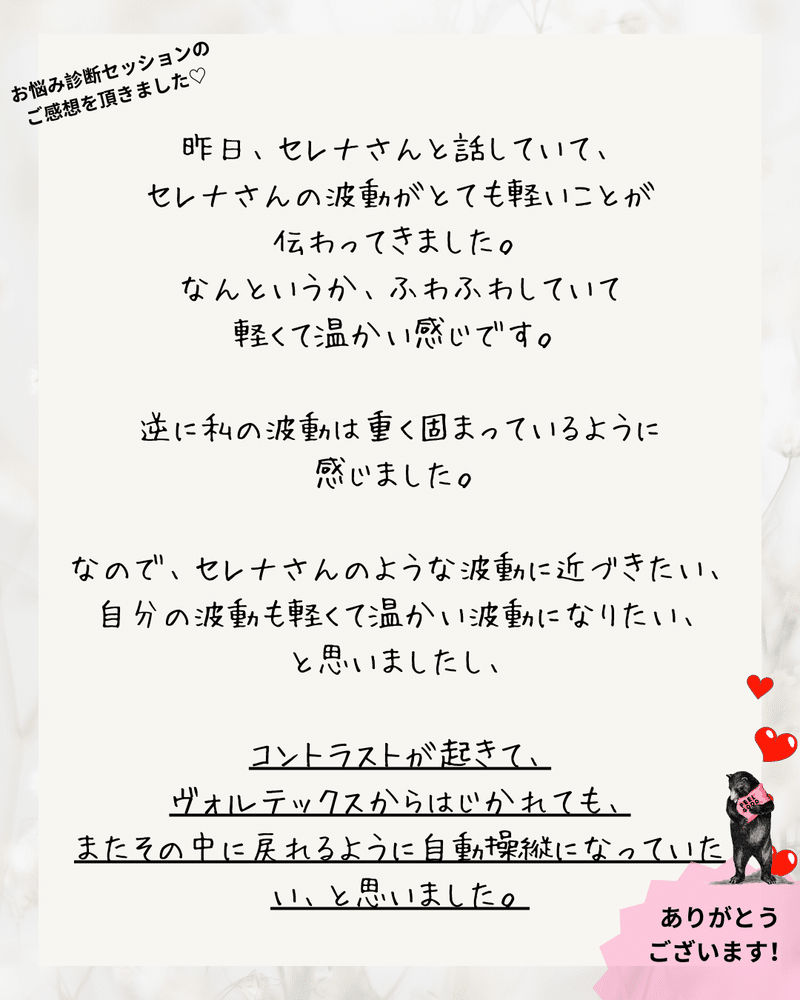 お悩み診断セッションの
ご感想を頂きました♡
昨日、セレナさんと話していて、
セレナさんの波動がとても軽いことが
伝わってきました。
なんというか、ふわふわしていて
軽くて温かい感じです。
逆に私の波動は重く固まっているように
感じました。
なので、セレナさんのような波動に近づきたい、
自分の波動も軽くて温かい波動になりたい、
と思いましたし、
コントラストが起きて、
ヴォルテックスからはじかれても、
またその中に戻れるように自動操縦になっていた
い、と思いました。
FEEL
GOOD
ありがとう
ございます!